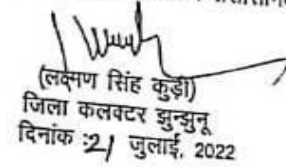 (लक्ष्मण सिंह कुड़ी)
जिला कलक्टर झुन्झुनू
दिनांक :21 जुलाई, 2022